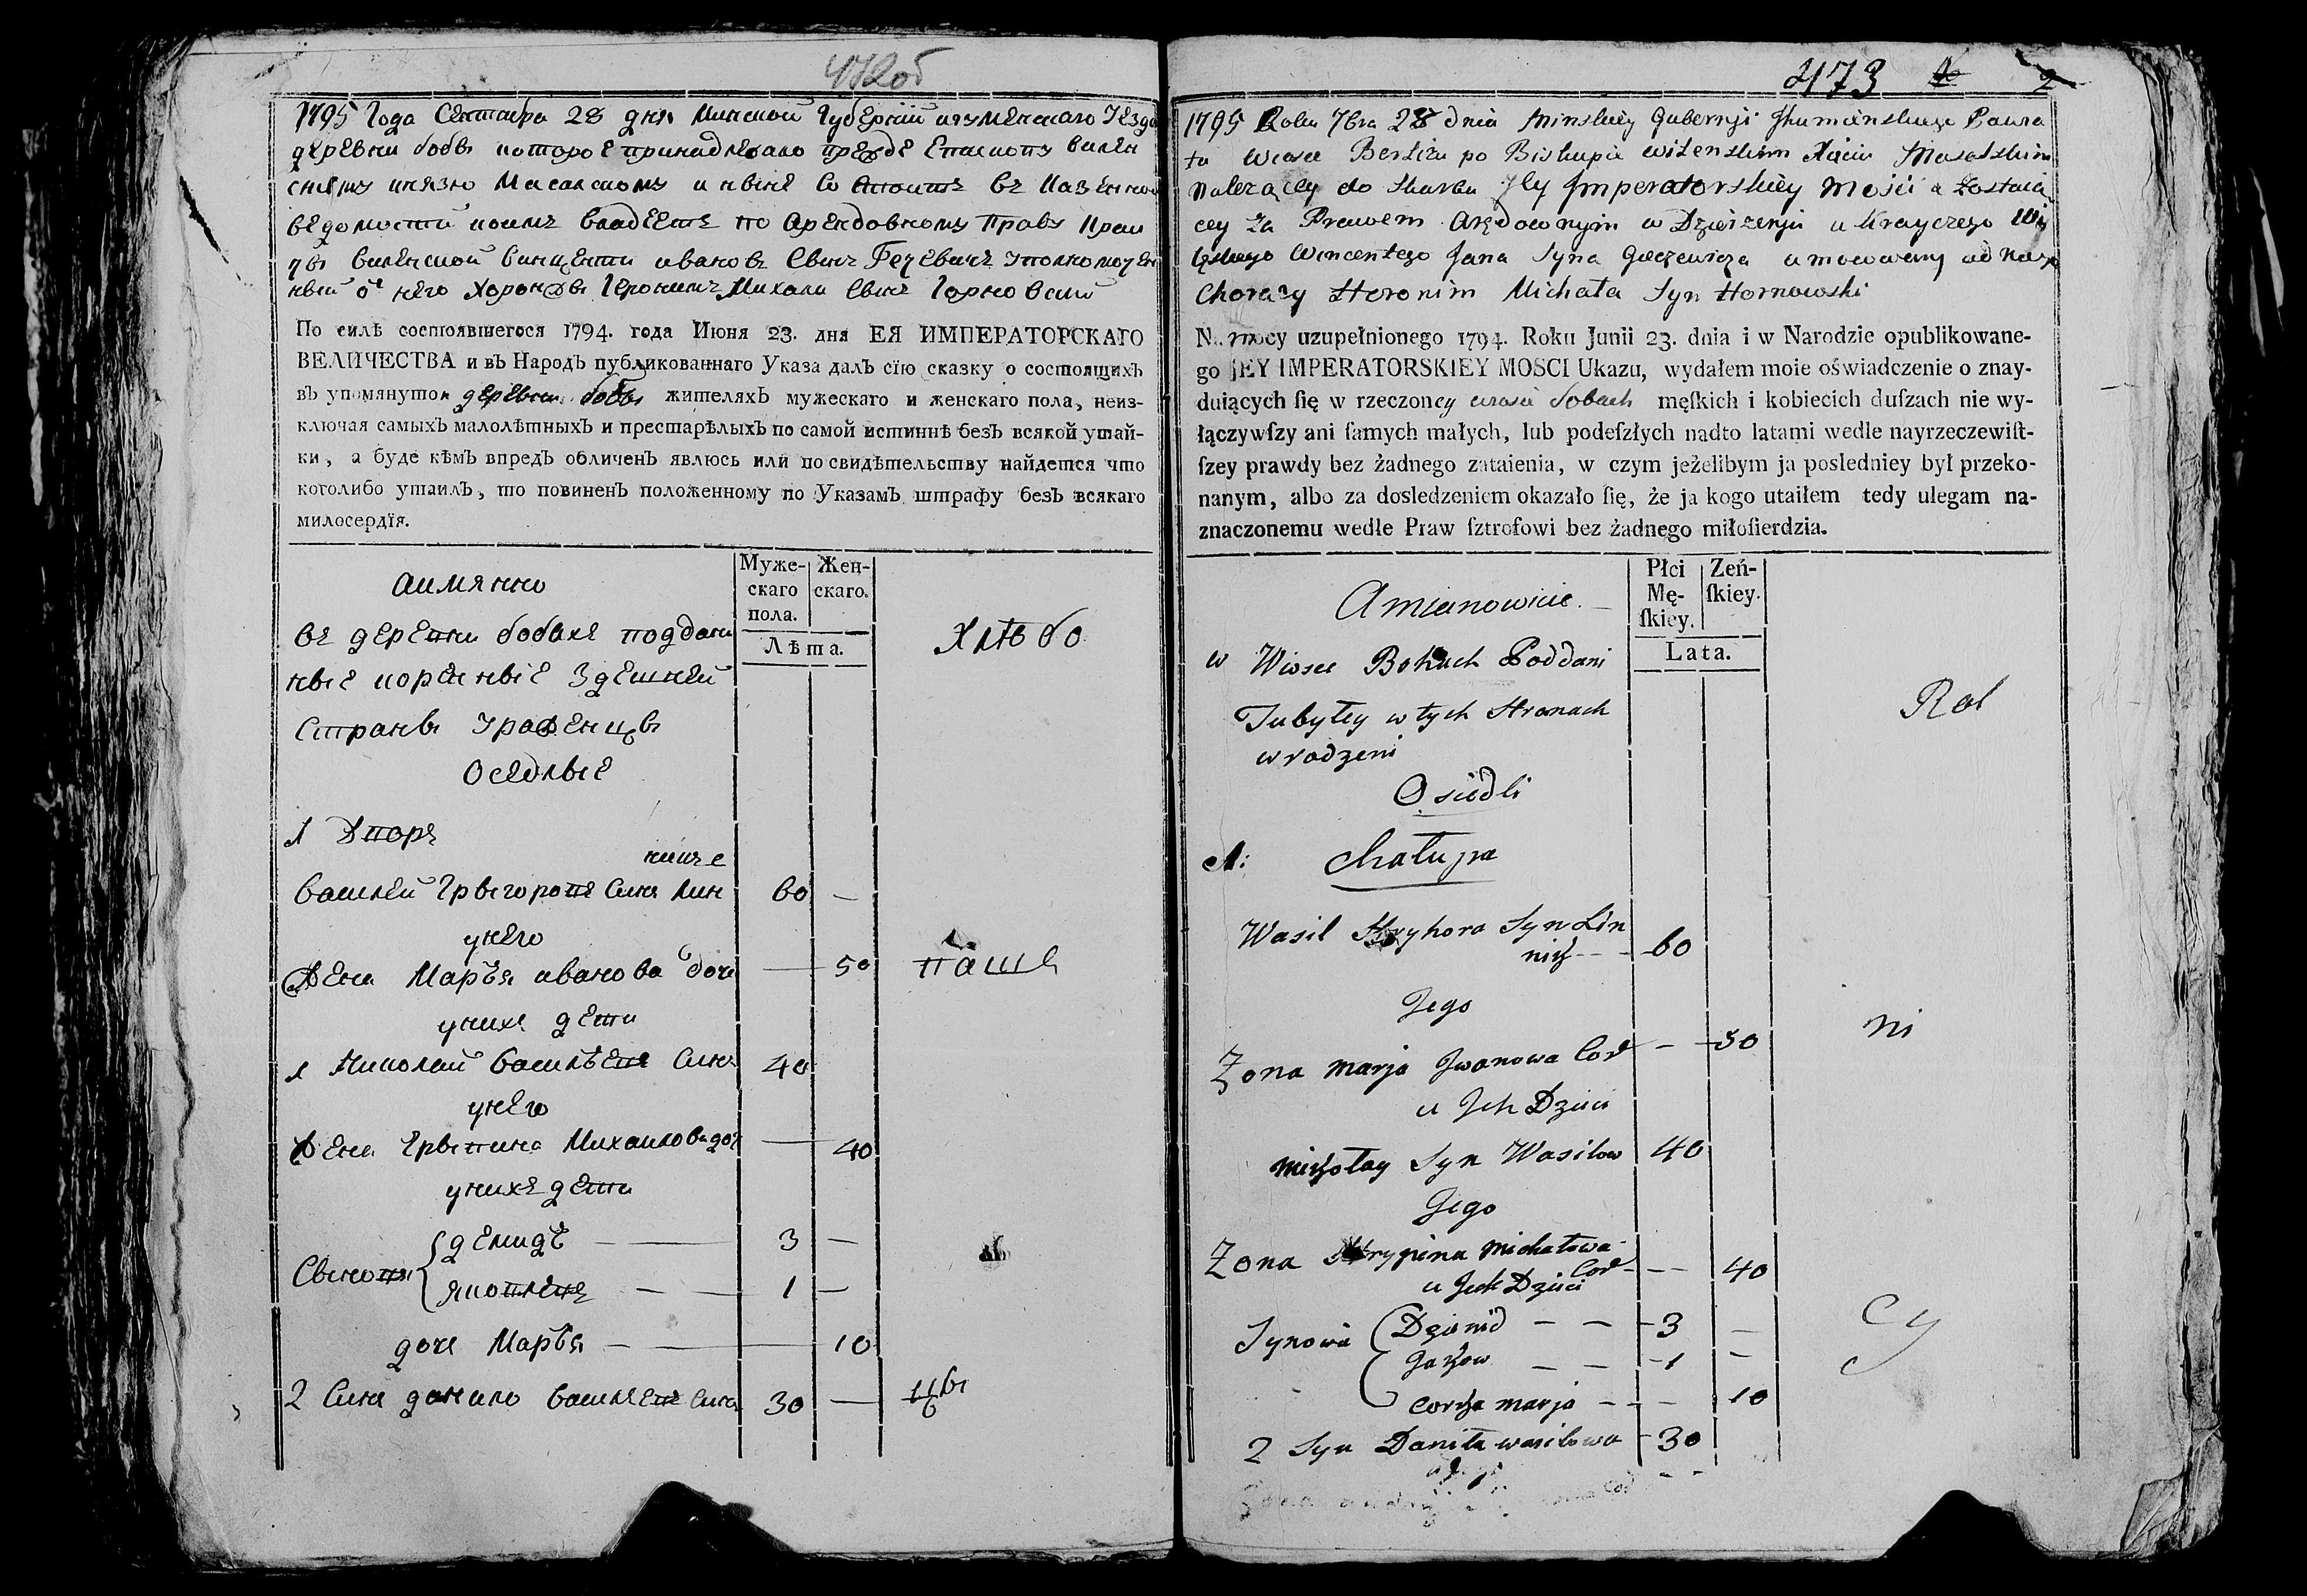 472об
1795 Года Сентября 28 дня Минской Губернїи Игуменскаго Уезда
деревни бобы которое принадлежало прежде Епископу вилен
скому князю Масалскому и ныне состоитъ въ Казенной
ведомости коимъ владеетъ по Арендовному Праву Край
чы виленской Винценти иванов Сынъ Гечевичъ уполномочен
ный от него Хоронжы Героним Михала Сынъ Горновский
По силѣ состоявшегося 1794. года Июня 23. дня ЕЯ ИМПЕРАТОРСКАГО
ВЕЛИЧЕСТВА и въ Народъ публикованнаго Указа далъ сїю сказку о состоящихъ
въ упомянутой деревни бобы жителяхъ мужескаго и женскаго пола, неиз-
ключая самыхъ малолѣтныхъ и престарѣлыхъ по самой истиннѣ безъ всякой утай-
ки, а буде кѣмъ впредь обличенъ явлюсь или по свидѣтельству найдется что
коголибо утаилъ, то повиненъ положенному по Указамъ штрафу безъ всякаго
милосердїя.
аимянно
Муже-скаго пола.
Жен-скаго.
Лѣта.
въ деревни бобахъ поддан
ные коренные Здешней
Страны Уроженцы
Оседлые
Хлѣбо
1 Дворъ
никъ
василей Грыгоровъ Синъ Лин 60 —
унего
Жена Марья иванова дочь — 50
паш
унихъ дети
1 Николай васильевъ Синъ 40
унего
Жена Ерыпина Михаилова доч — 40
унихъ дети
Сыновя { демидъ — 3 —
яковъ — 1 —
дочь Марья — 10
2 Синъ данило васильевъ Синъ 30 —
цы
473
2
1795 Roku 7bra 28 dnia Minskiey Gubernji Ihumenskiego Powia
tu Wiosce po Biskupie wilenskim Xięciu Masalskim
Należącey do Skarbu Jey Imperatorskiey Mości a zostaią
cey za Prawem Arędownym w Dzierżeniu u Krayczego Wi
leńskiego Wincentego Jana Syna Gieczewicza umocowany od niego
Chorąży Heronim Michała Syn Hornowski
Na mocy uzupełnionego 1794. Roku Junii 23. dnia i w Narodzie opublikowane-
go JEY IMPERATORSKIEY MOSCI Ukazu, wydałem moie oświadczenie o znay-
duiących ſię w rzeczoney wiosce bobach męſkich i kobiecich duſzach nie wy-
łączywſzy ani ſamych małych, lub podeſzłych nadto latami wedle nayrzeczewiſt-
ſzey prawdy bez żadnego zataienia, w czym jeżelibym ja posledniey był przeko-
nanym, albo za dosledzeniem okazało ſię, że ja kogo utaiłem tedy ulegam na-
znaczonemu wedle Praw ſztrofowi bez żadnego miłoſierdzia.
Amianowicie
Płci Mę-ſkiey.
Zeń-ſkiey.
Lata.
w Wiosce Bobach Poddani
Tubylcy w tych Stronach
wrodzeni
Rol
Osiedli
1: Chałupa
Wasil Hryhora Syn Lin
nik 60
Jego
Zona Marja Iwanowa Cor — 50
ni
u Ich Dzieci
Mikołay Syn Wasilow 40
Jego
Zona Hrypina Michałowa
Cor — 40
u Ich Dzieci
Synowie Dziemid — — 3 —
Jakow — — 1 —
Corka Marja — — 10
cy
2 Syn Daniła Wasilowa 30